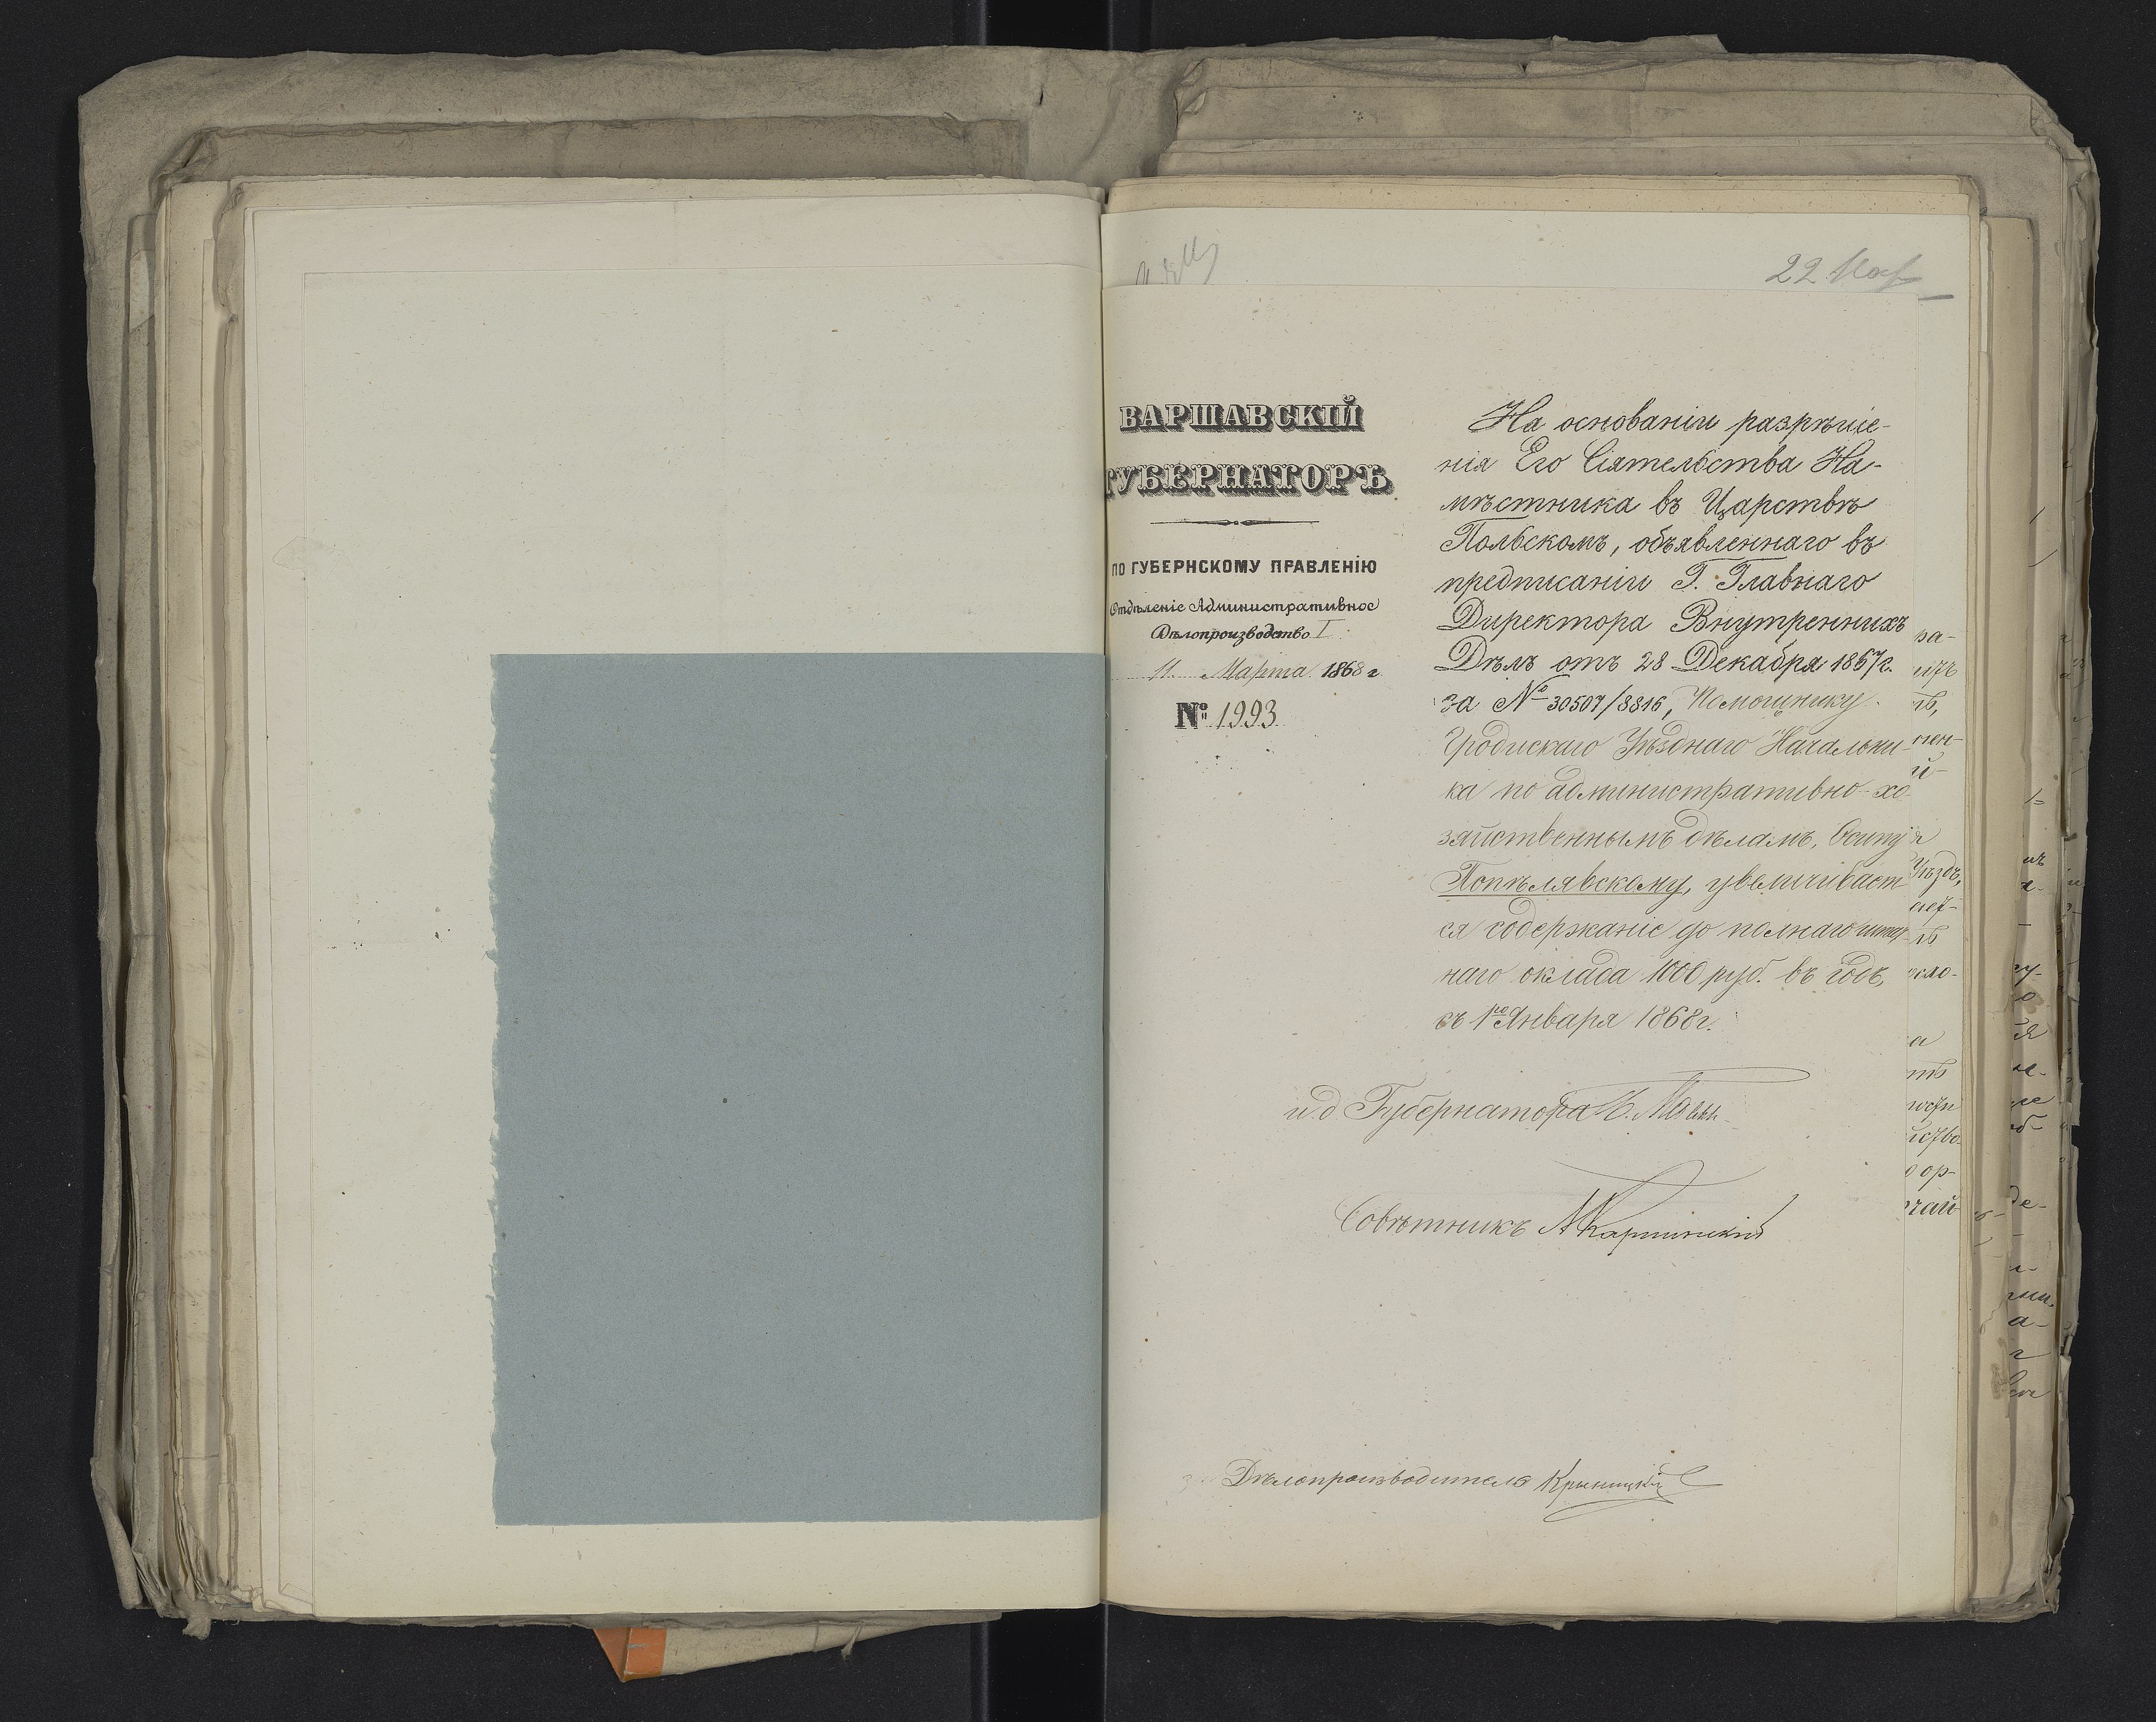 22 Мар
ВАРШАВСКІЙ
ГУБЕРНАТОРЪ
ПО ГУБЕРНСКОМУ ПРАВЛЕНІЮ
Отдѣленіе Административное
Дѣлопроизводство I.
11. Марта 1868 г.
№ 1993
На основаніи разрѣше-
нія Его Сіятельства На-
мѣстника въ Царствѣ
Польскомъ, объявленнаго въ
предписаніи Г. Главнаго
Директора Внутреннихъ
Дѣлъ отъ 28 Декабря 1867 г.
за № 30507/8816, Помощнику
Гродискаго Уѣзднаго Начальни-
ка по административно-хо-
зяйственнымъ дѣламъ, Осипу
Попѣлявскому, увеличивает
ся содержаніе до полнаго штат-
наго оклада 1000 руб. въ годъ,
съ 1го Января 1868 г.
и д Губернатора
Совѣтникъ
Дѣлопроизводителя Крыницкій